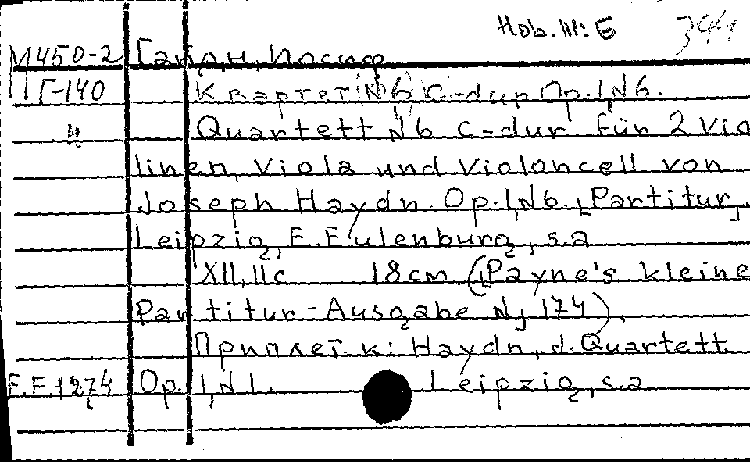 Hob. III: 6 344
М450-2 Гайдн, Иосиф
Г-140 Квартет №6 C-dur Op.1,№6.
4 Quartett №6 C-dur für 2 Vio
linen, Viola und Violoncell von
Joseph Haydn. Op.1,№6. [Partitur]
Leipzig, E. Eulenburg, s.a
XII, 11с 18см (Payne's kleine
Partitur-Ausgabe № 174).
Приплет к: Haydn, J. Quartett
E.E.1274 Op. 1,№1. Leipzig, s.a